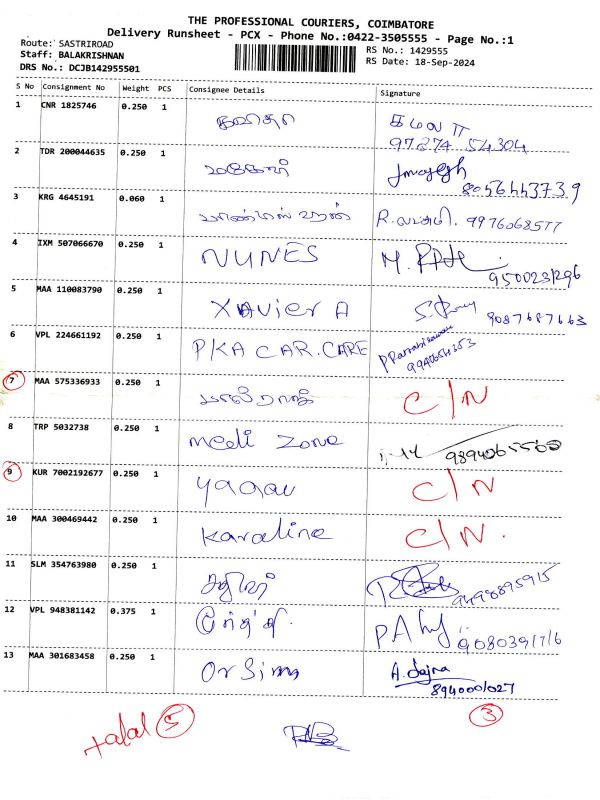 THE PROFESSIONAL COURIERS, COIMBATORE
Delivery Runsheet - PCX - Phone No.:0422-3505555 - Page No.:1
Route: SASTRIROAD
RS No.: 1429555
Staff: BALAKRISHNAN
RS Date: 18-Sep-2024
DRS No.: DCJB142955501
S No Consignment No Weight PCS Consignee Details Signature
1 CNR 1825746 0.250 1 கவிதா கமலா
97874 54304
2 TDR 200044635 0.250 1
8056443739
3 KRG 4645191 0.060 1 R. லட்சுமி. 9976068577
4 IXM 507066670 0.250 1 NUNES M.
9500231296
5 MAA 110083790 0.250 1 XAvier A 9087687663
6 VPL 224661192 0.250 1 PKA CAR.CARE
7 MAA 575336933 0.250 1 C/N
8 TRP 5032738 0.250 1 medi zone 9894065560
9 KUR 7002192677 0.250 1 C/N
10 MAA 300469442 0.250 1 Karoline C/N.
11 SLM 354763980 0.250 1 9498895915
12 VPL 948381142 0.375 1 9080391716
13 MAA 301683458 0.250 1
8940001027
total 5 3